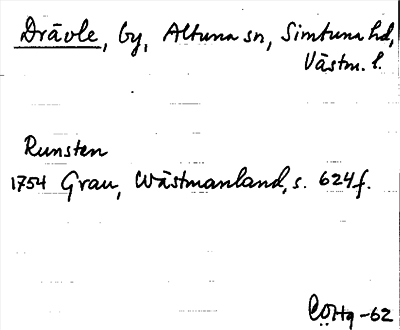 Drävle, by, Altuna sn, Simtuna hd,
Västm. l.
Runsten
1754 Grau, Wästmanland, s. 624f.
CÖHg -62